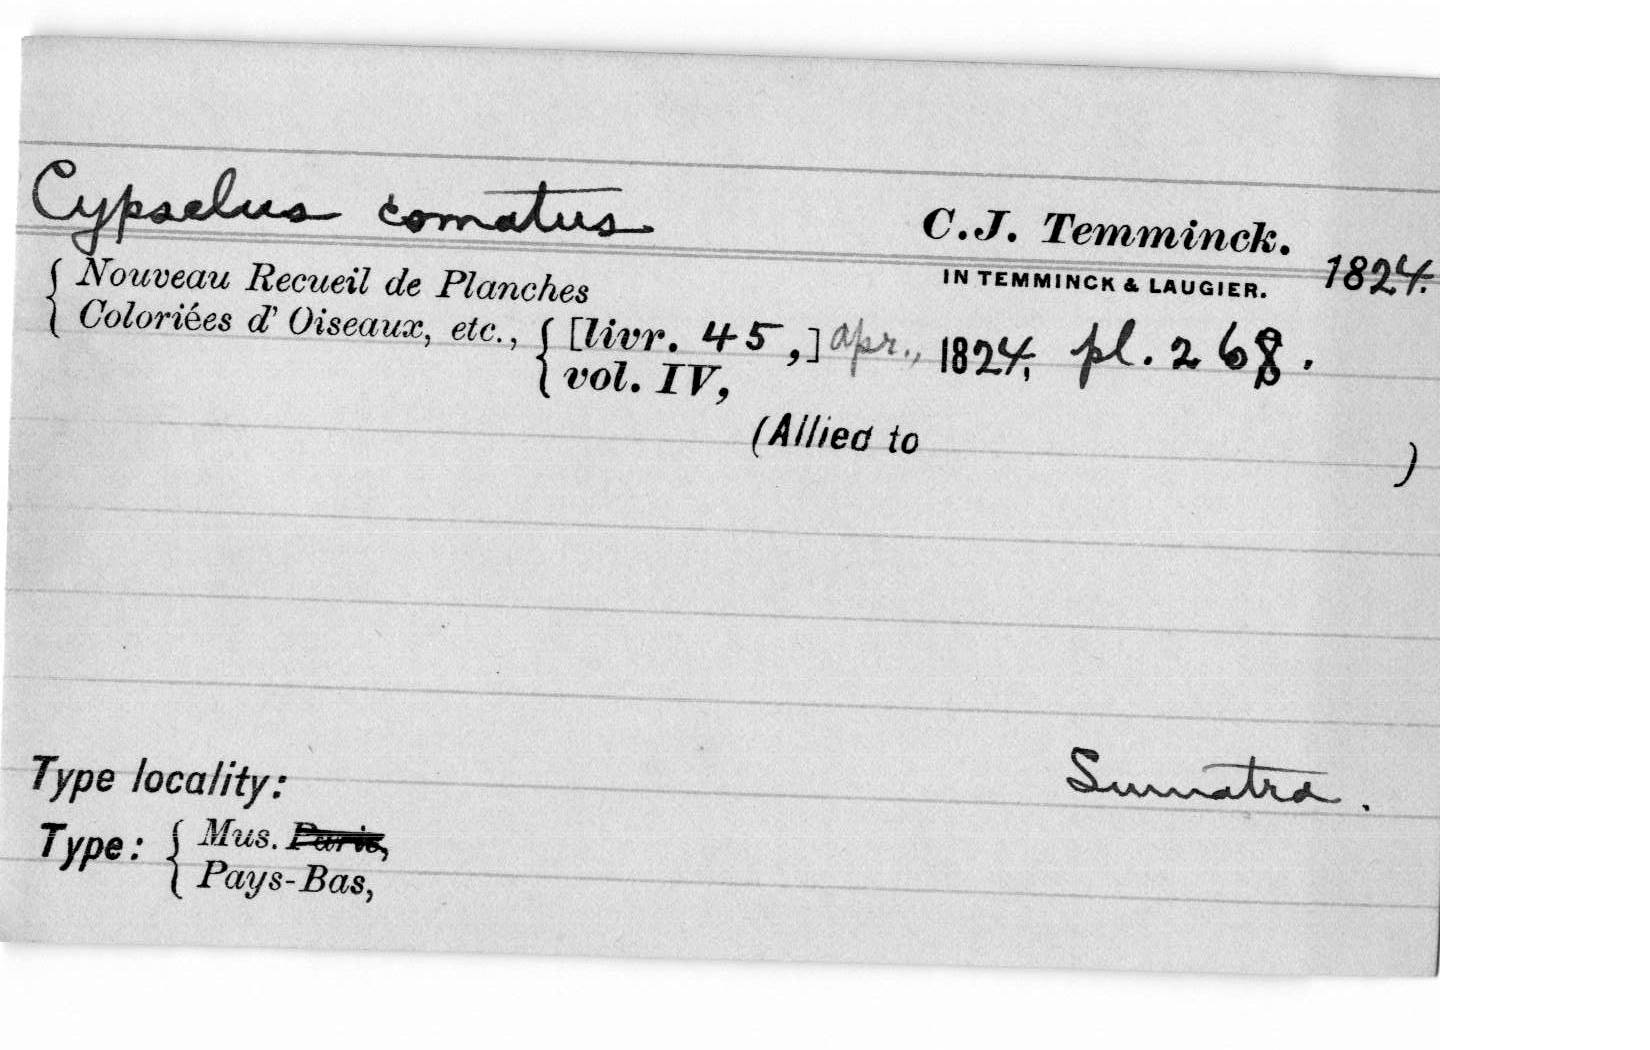 Cypselus comatus C.J. Temminck.
IN TEMMINCK & LAUGIER. 1824.
{ Nouveau Recueil de Planches
Coloriées d' Oiseaux, etc., { [livr. 45,] apr., 1824, pl. 268.
vol. IV,
(Allied to )
Type locality: Sumatra.
Type: { Mus. Paris,
Pays-Bas,